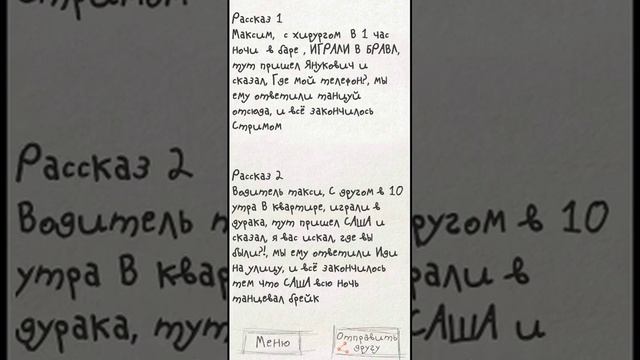 Рассказ 1
Максим, с хирургом В 1 час
ночи в баре , ИГРАЛИ В БРАВЛ,
тут пришел Янукович и
сказал, Где мой телефон?, мы
ему ответили танцуй
отсюда, и всё закончилось
Стримом
Рассказ 2
Водитель такси, С другом в 10
утра В квартире, играли в
дурака, тут пришел САША и
сказал, я вас искал, где вы
были?!, мы ему ответили Иди
на улицу, и всё закончилось
тем что САША всю ночь
танцевал брейк
Меню
Отправить
другу
Рассказ 2
Водитель т
ругом в 10
утра В ква
рали в
дурака, тут
САША и